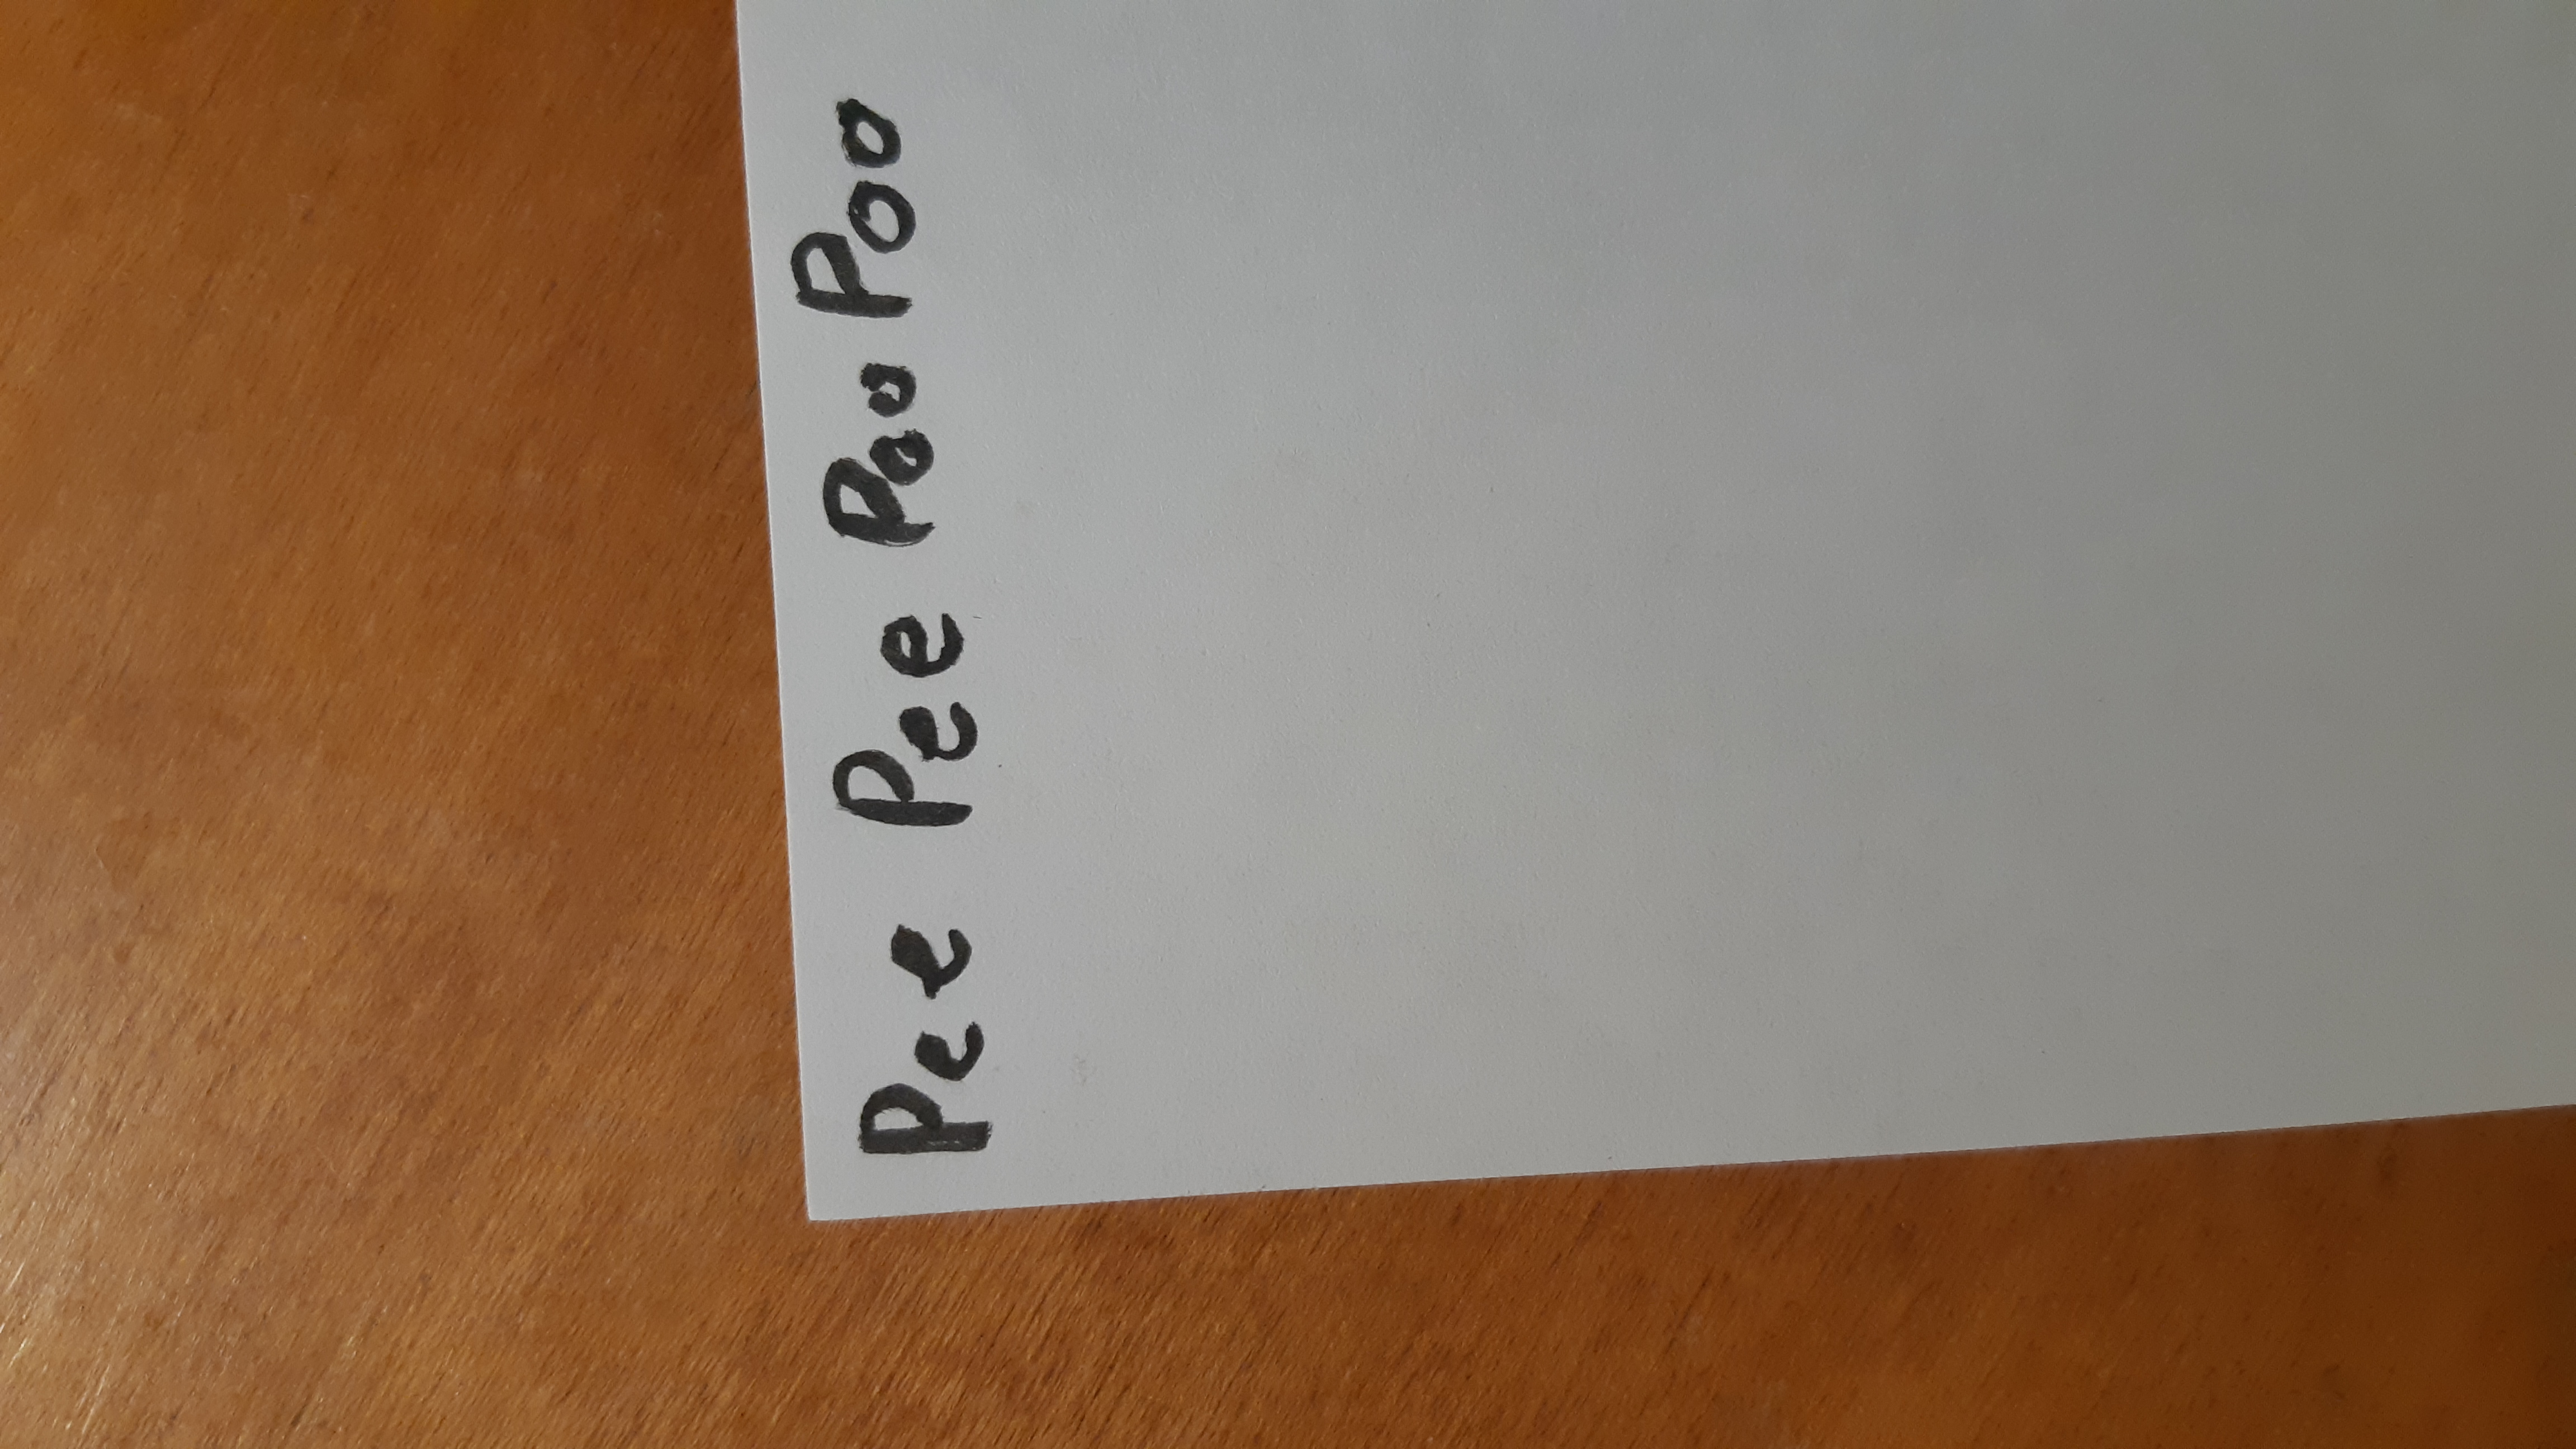 Pee Pee Poo Poo